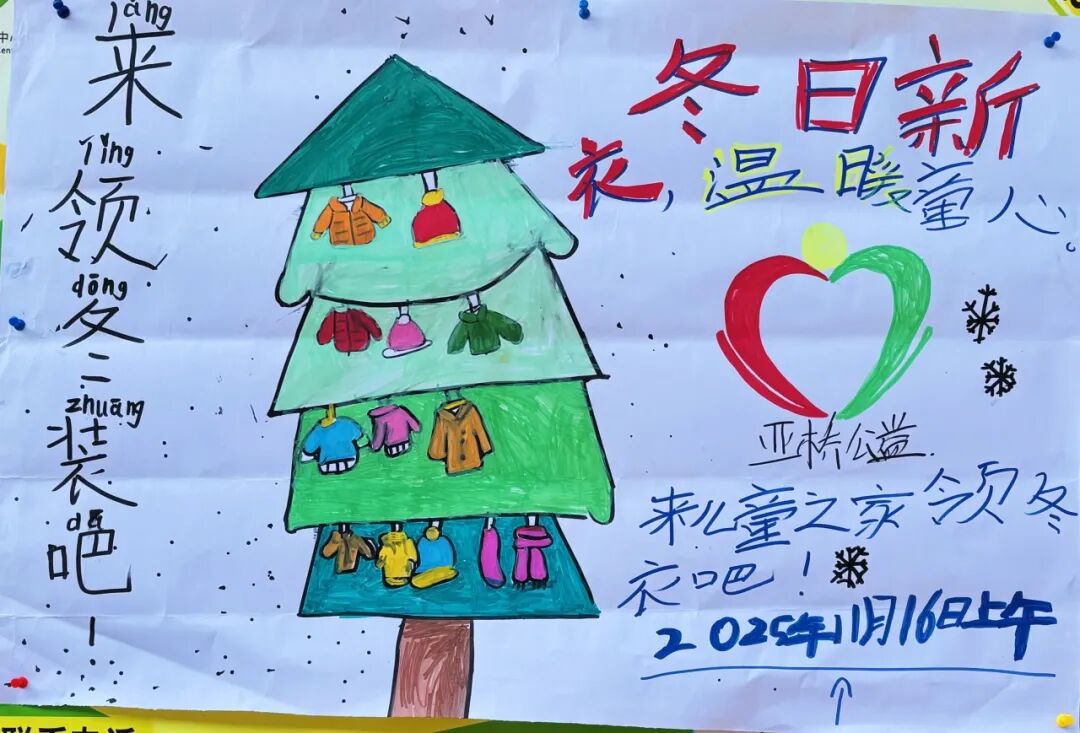 jāng
来
lǐng
领
dōng
冬
zhuāng
装
吧
!
冬日新
衣,温暖童心。
亚桥公益
来儿童之家领冬
衣吧!
2025年11月16日上午